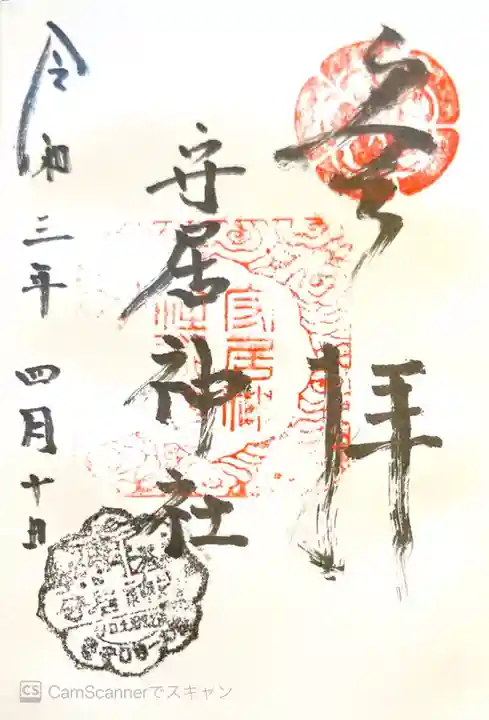 参拝
安居神社
令和三年 四月十日
CS CamScannerでスキャン